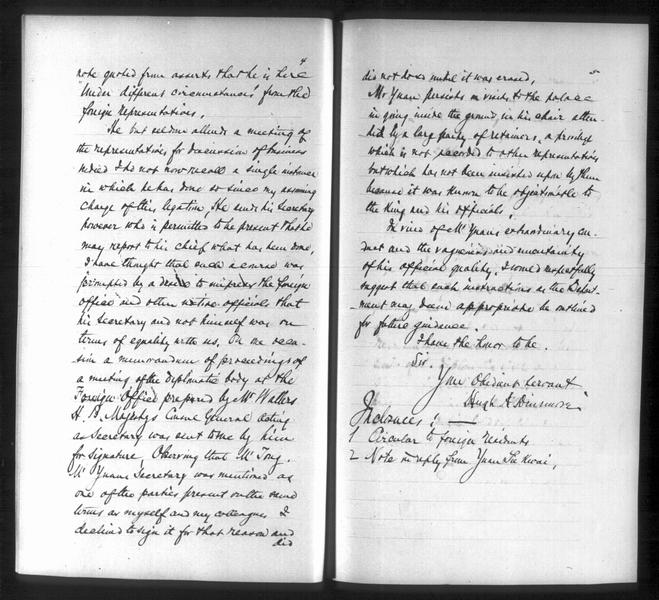 4
note quoted from asserts that he is here
"under different circumstances" from the
foreign representatives.
He but seldom attends a meeting of
the representatives for discussion of business
indeed I do not now recall a single instance
in which he has done so since my assuming
charge of this legation, He sends his Secretary
however who is permitted to be present that he
may report to his chief what has been done,
I have thought that such a course was
prompted by a desire to impress the foreign
office and other native officials that
his Secretary and not himself was on
terms of equality with us. On one occa-
sion a memorandum of proceedings of
a meeting of the diplomatic body at the
Foreign Office prepared by Mr Watters
H. B. Majestys Consul General acting
as Secretary was sent to me by him
for signature Observing that Mr Tong,
Mr Yuans Secretary was mentioned as
one of the parties present on the same
terms as myself and my colleagues I
declined to sign it for that reason and
did
5
did not do so until it was erased,
Mr Yuan persists in visits to the palace
in going inside the ground, in his chair atten-
ded by a large party of retainers, a privilege
which is not accorded to other representatives
but which has not been insisted upon by them
because it was known to be objectionable to
the King and his officials,
In view of Mr Yuans extraordinary con-
duct and the vagueness and uncertainty
of his official quality, I would respectfully
suggest that such instructions as the Depart-
ment may deem appropriate be outlined
for future guidance
I have the honor to be.
Sir.
Your Obedient Servant
Hugh A Dinsmore
Inclosures:
1 Circular to foreign residents
2 Note in reply from Yuan Sie Kwai,